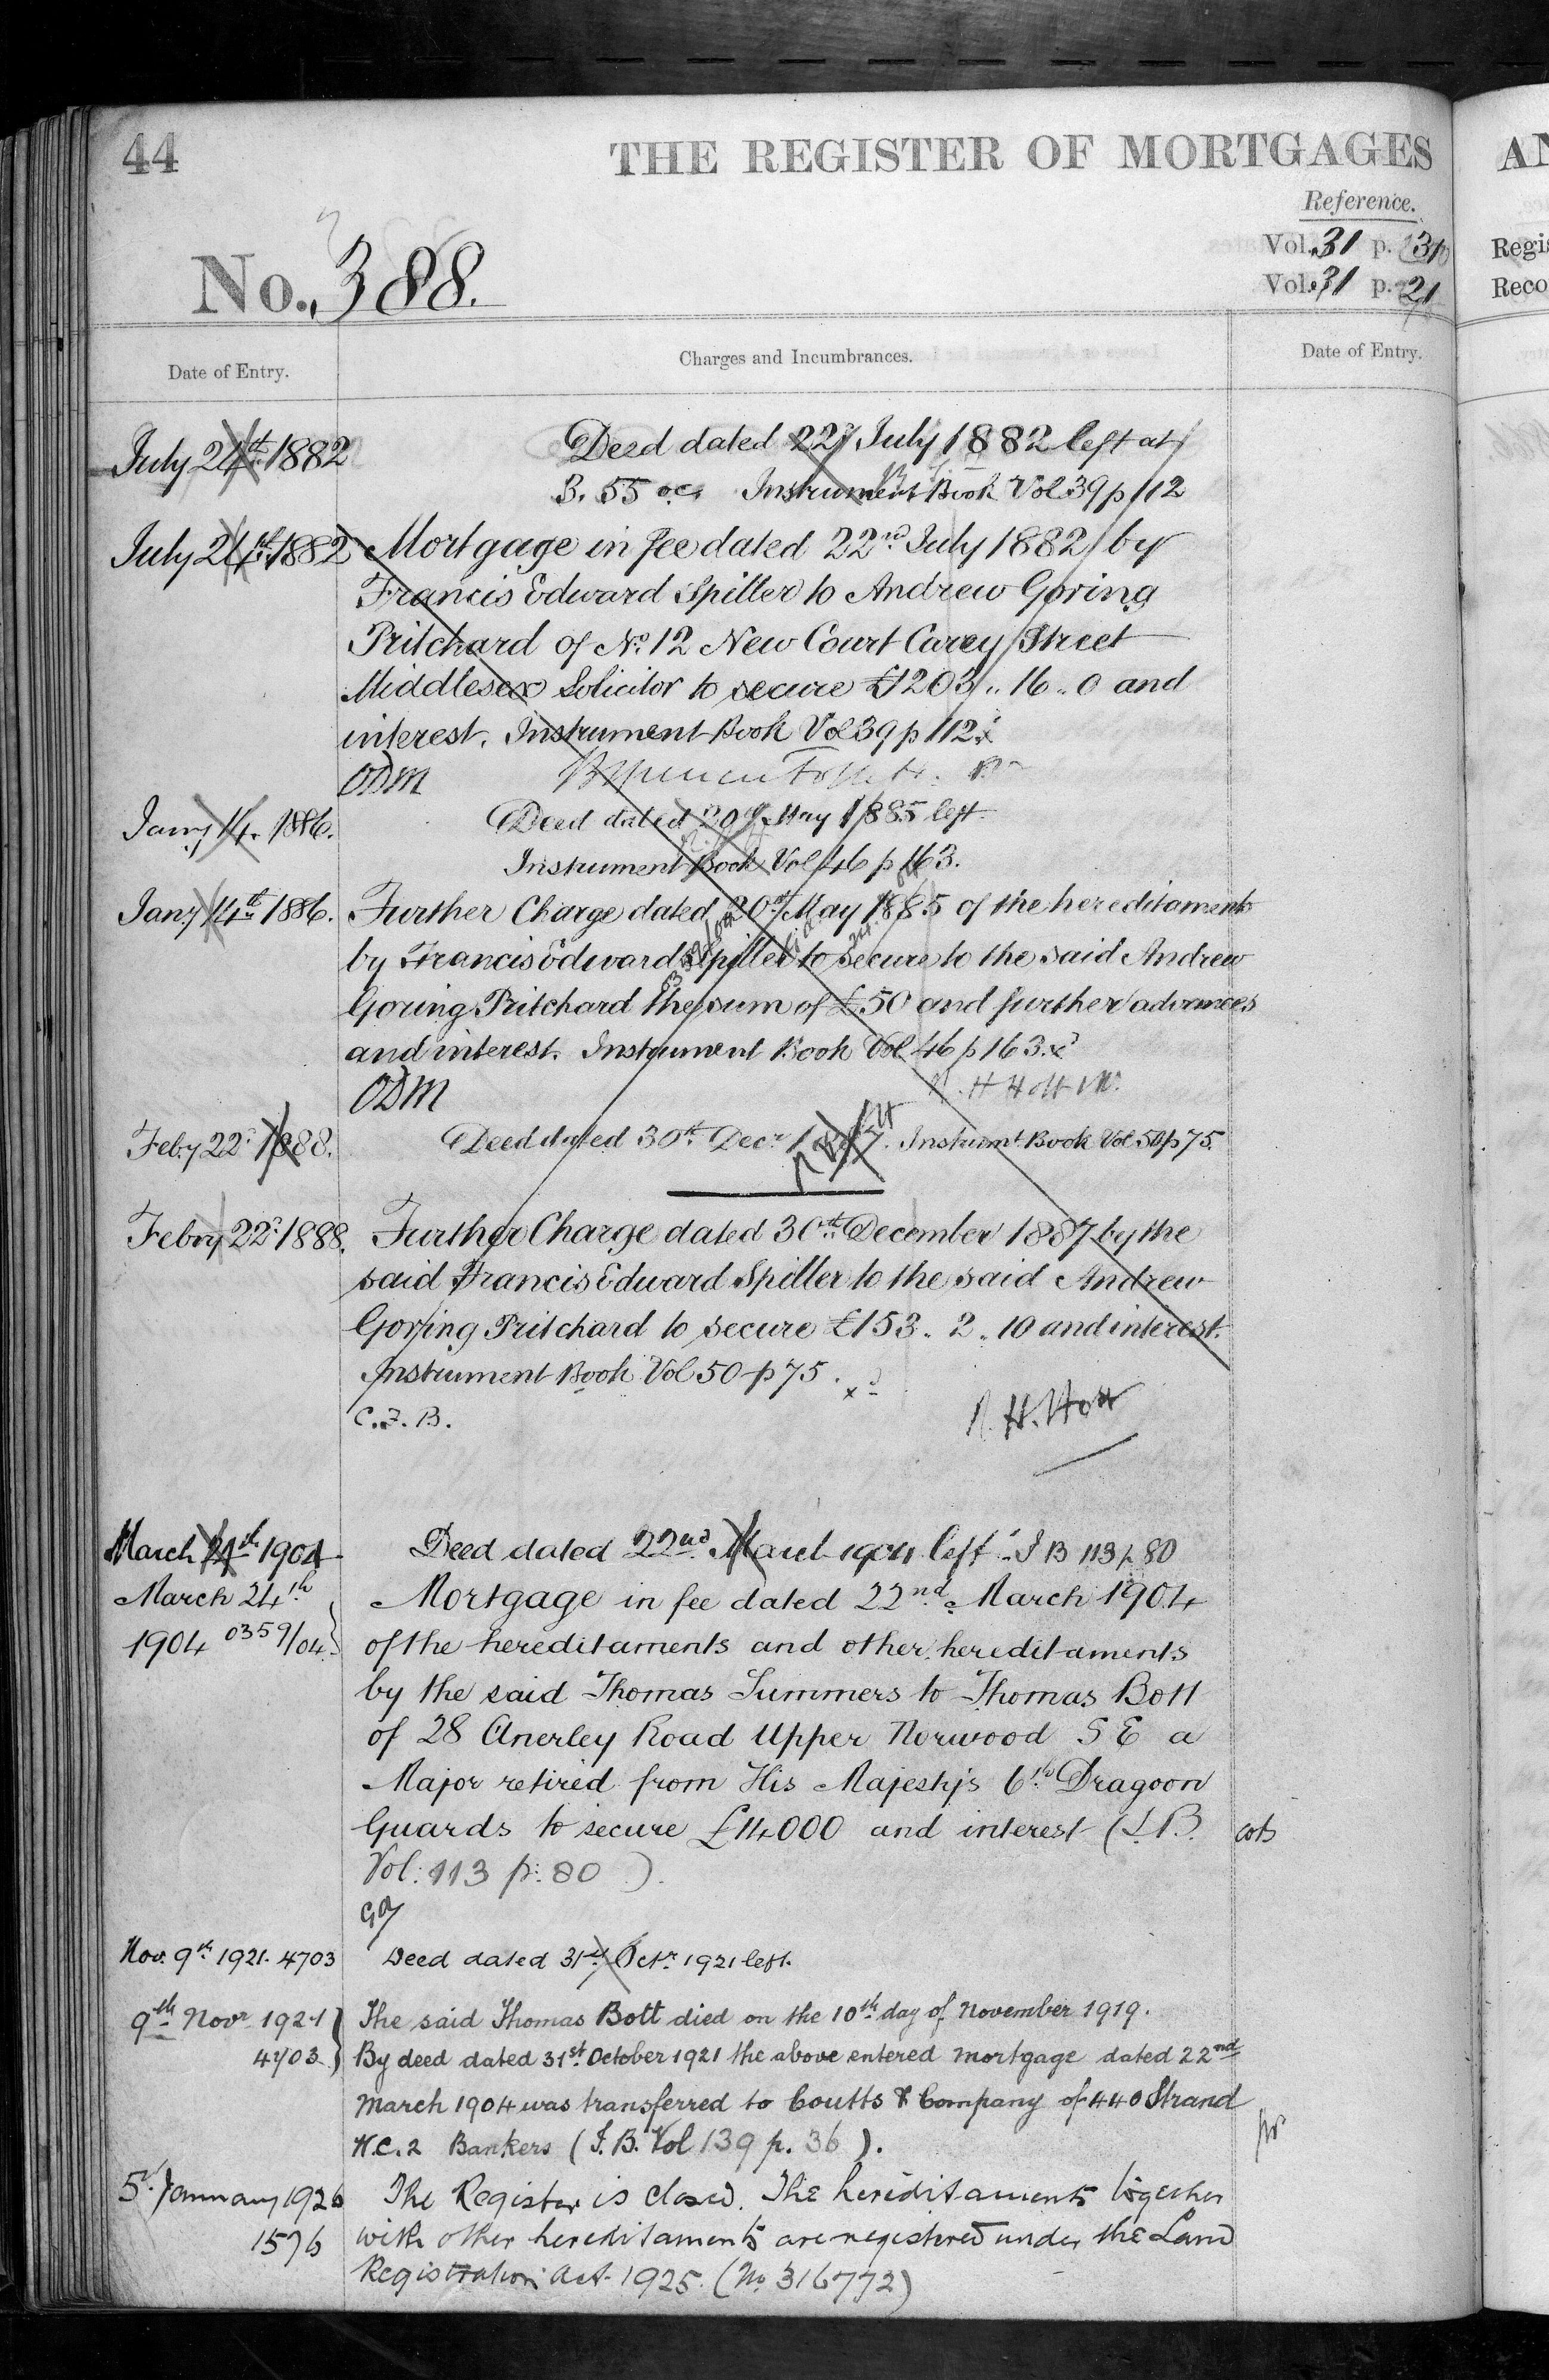 44
THE REGISTER OF MORTGAGES
Reference.
Vol. 31 p. 31
Vol. 31 p. 21
No. 388.
Date of Entry.
Charges and Incumbrances.
Date of Entry.
July 24th 1882
Deed dated 22d July 1882 left at
3.55 oc Instrument Book Vol 39 p 112
July 24th 1882
Mortgage in fee dated 22nd July 1882 by
Francis Edward Spiller to Andrew Goring
Pritchard of No. 12 New Court Carey Street
Middlesex Solicitor to secure £1203 .. 16 .. 0 and
interest. Instrument Book Vol 39 p 112
ODM
Jany 14. 1886.
Deed dated 20th May 1885 left
Instrument Book Vol 46 p 163.
Jany 14th 1886.
Further Charge dated 20th May 1885 of the hereditaments
by Francis Edward Spiller to secure to the said Andrew
Goring Pritchard the sum of £50 and further advances
and interest. Instrument Book Vol 46 p 163.
ODM
R. H. Holt
Feby 22d 1888.
Deed dated 30th Decr 1887. Instrumt. Book Vol 50 p 75.
Febry 22d 1888.
Further Charge dated 30th December 1887 by the
said Francis Edward Spiller to the said Andrew
Goring Pritchard to secure £153 .. 2 .. 10 and interest.
Instrument Book Vol 50 p 75.
C.J.B.
R. H. Holt
March 24th 1904
Deed dated 22nd March 1904 left - I B 113 p 80
March 24th
1904 0359/04
Mortgage in fee dated 22nd March 1904
of the hereditaments and other hereditaments
by the said Thomas Summers to Thomas Bott
of 28 Anerley Road Upper Norwood S E a
Major retired from His Majesty's 6th Dragoon
Guards to secure £14000 and interest (I.B.
Vol: 113 p: 80 ).
Nov. 9th 1921. 4703
Deed dated 31st Octr 1921 left.
9th Novr 1921
4703
The said Thomas Bott died on the 10th day of November 1919.
By deed dated 31st October 1921 the above entered mortgage dated 22nd
March 1904 was transferred to Coutts & Company of 440 Strand
W.C.2 Bankers (I.B. Vol 139 p. 36 ).
5th January 1926
1576
The Register is closed. The hereditaments together
with other hereditaments are registered under the Land
Registration Act 1925. (No 316772)
AN
Regis
Reco